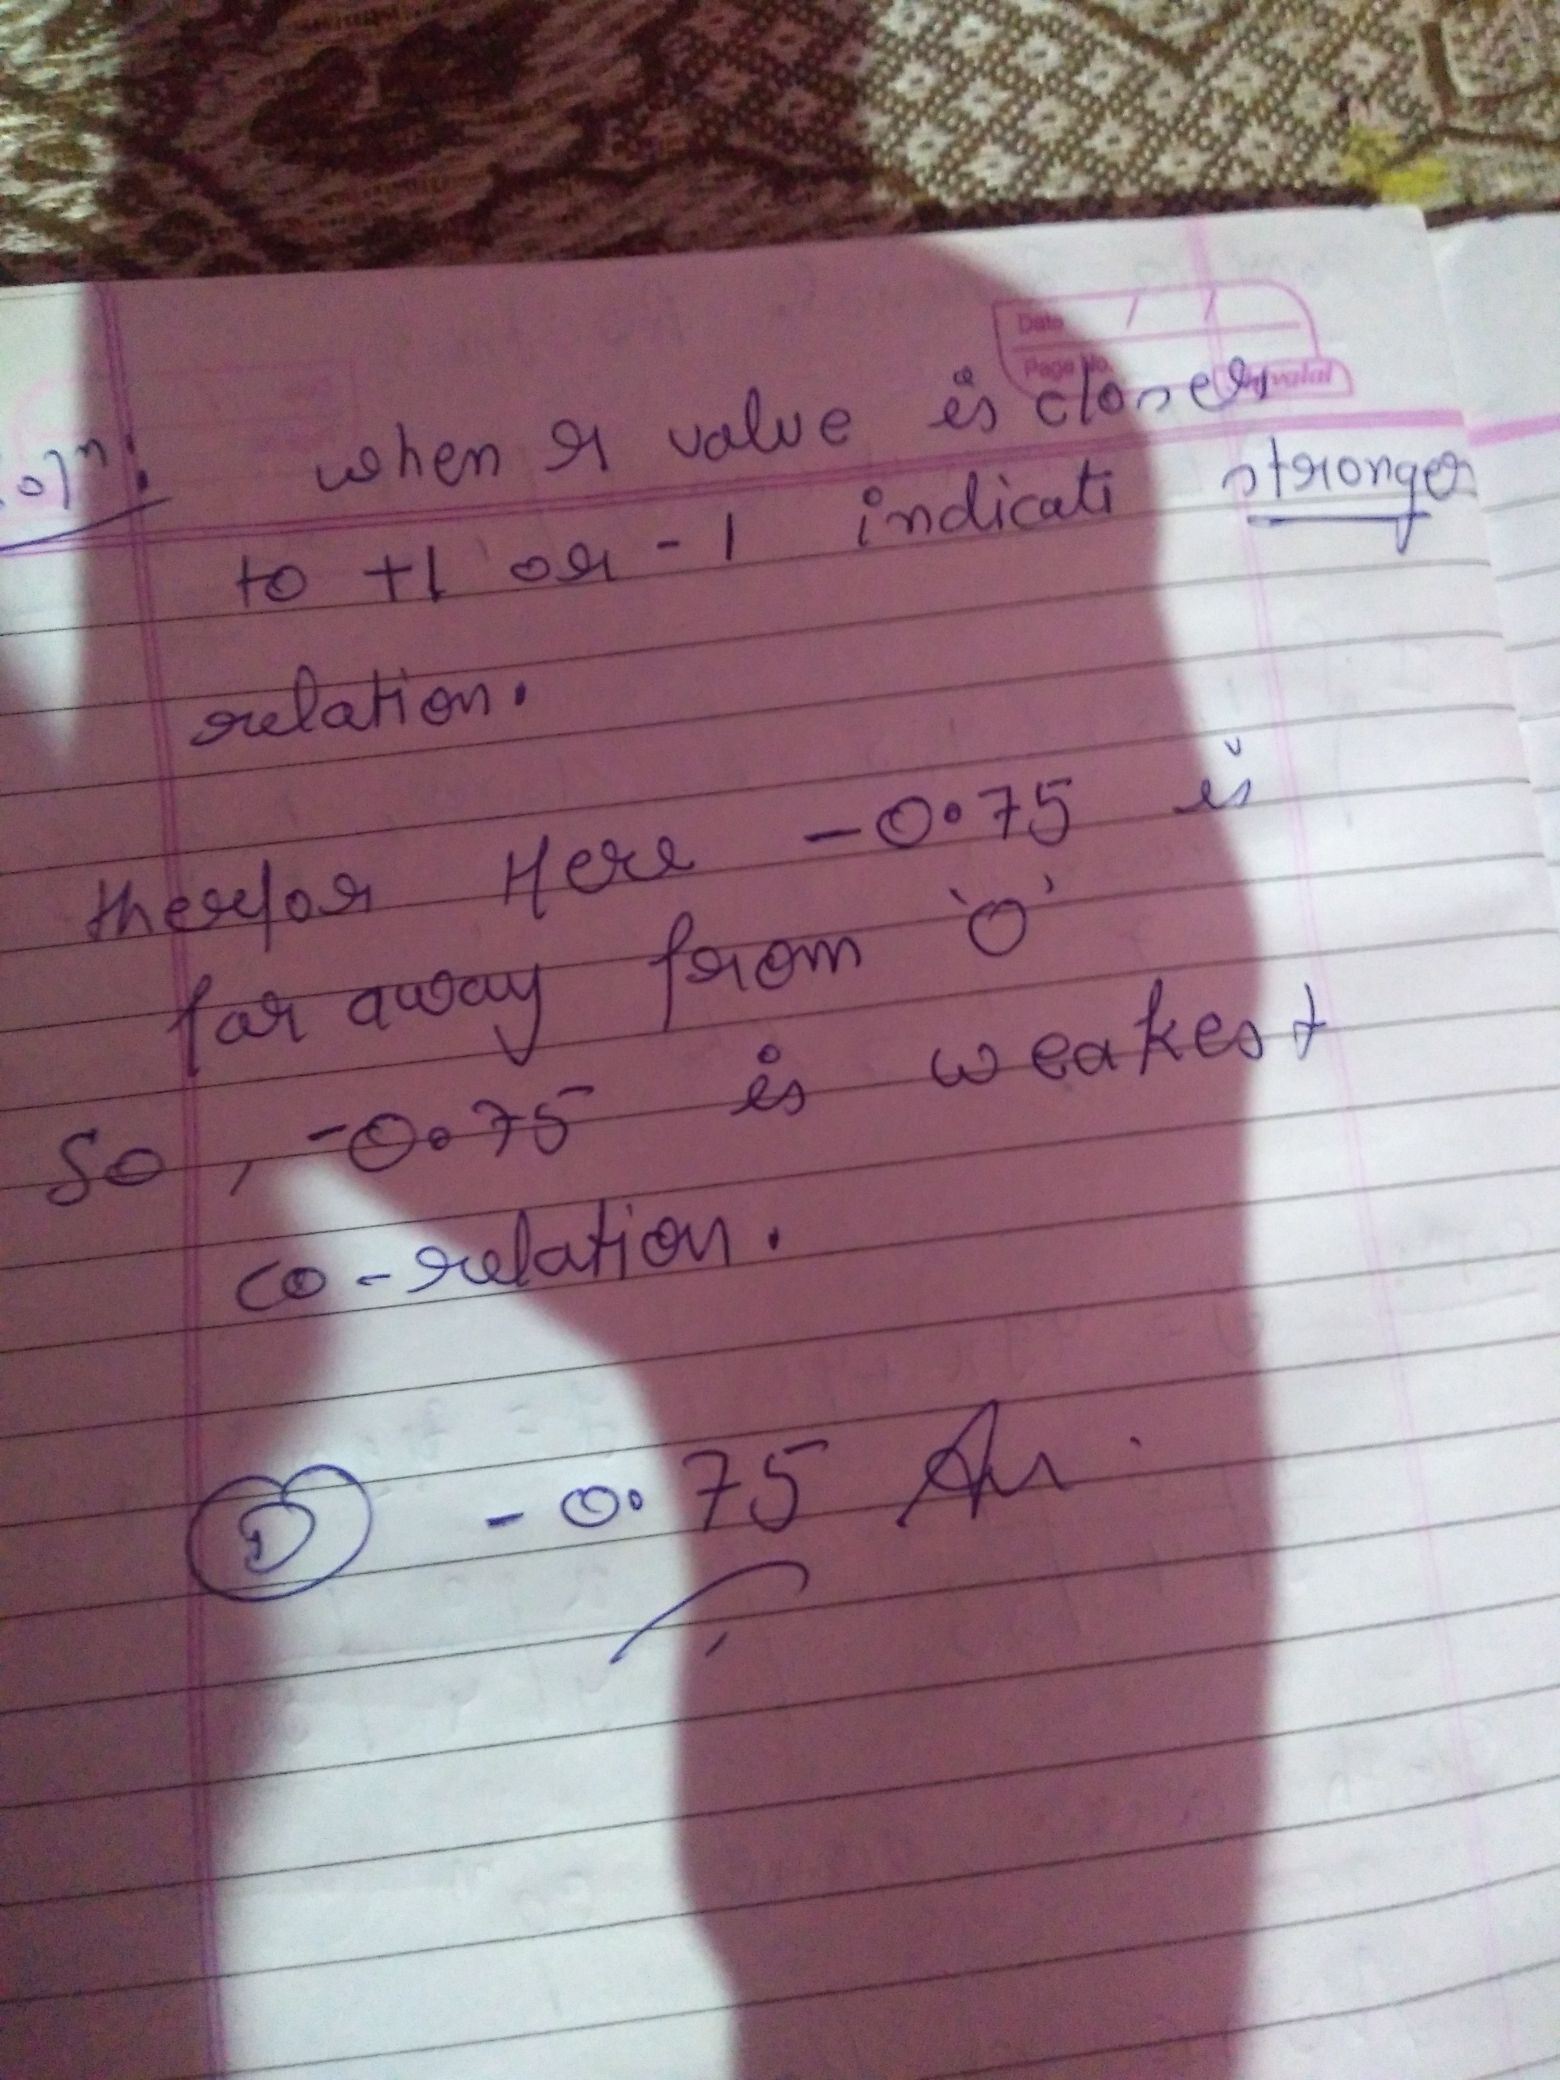 Date / /
Page No.
Soln: when r value is closer
to +1 or -1 indicati stronger
relation.
therefor Here -0.75 is
far away from '0'
So, -0.75 is weakest
co-relation.
D -0.75 Ans